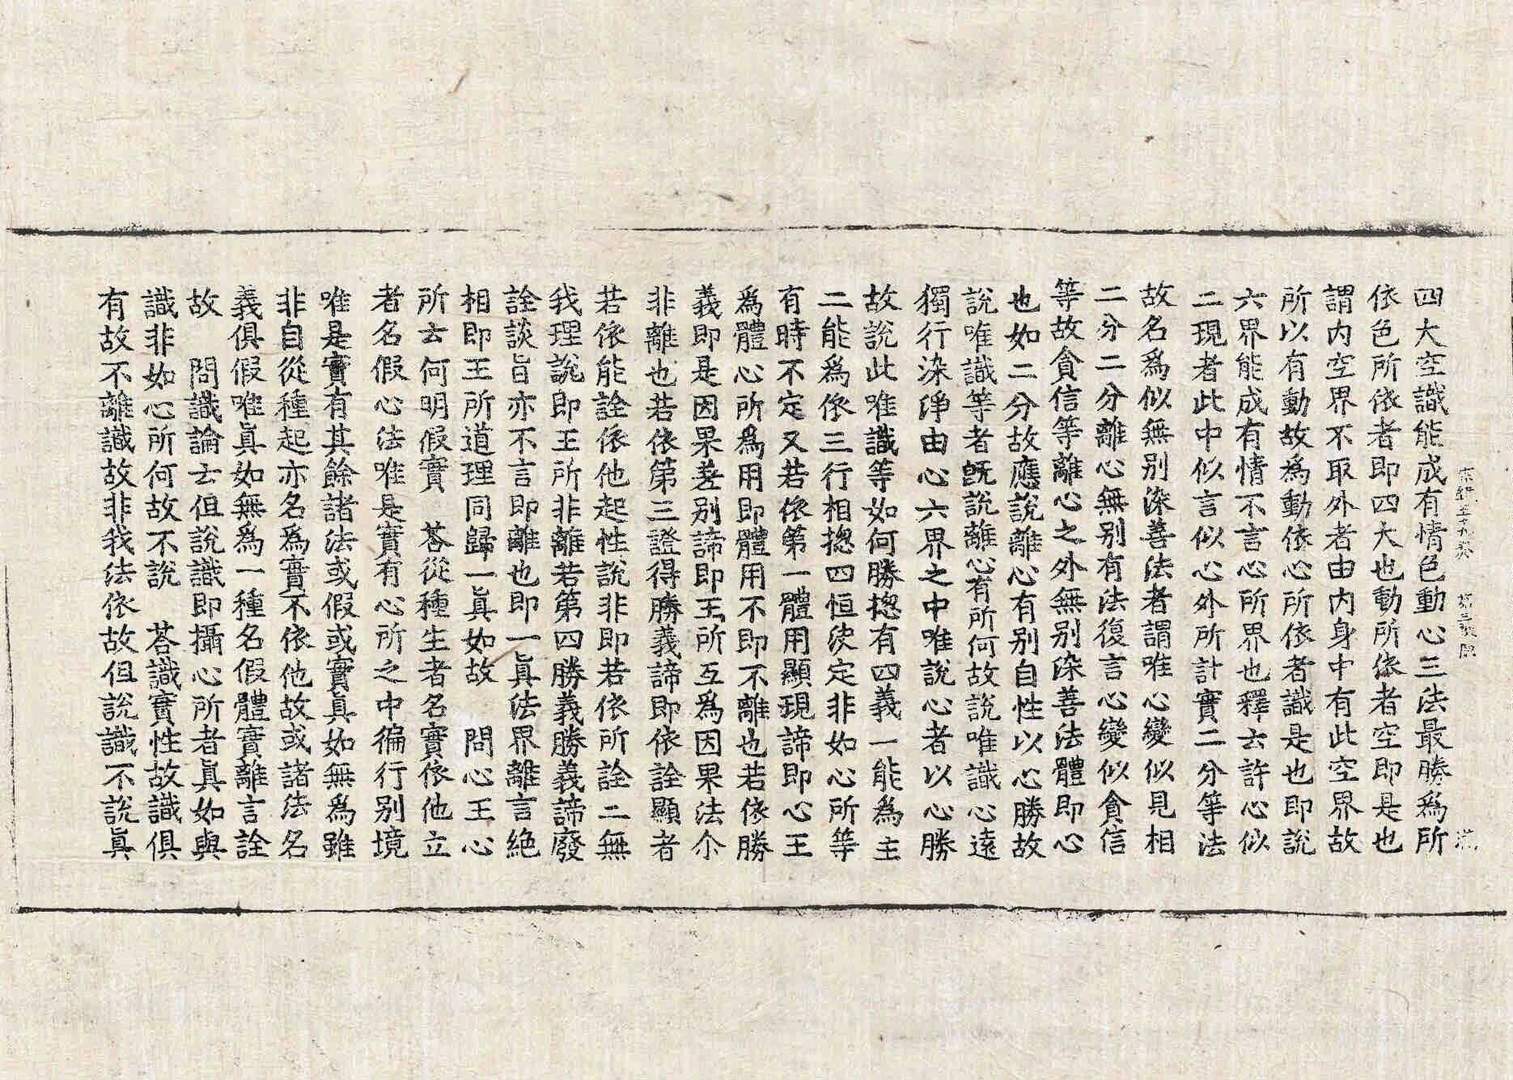 四大空識能成有情色動心三法最勝爲所
依色所依者即四大也動所依者空即是也
謂内空界不取外者由内身中有此空界故
所以有動故爲動依心所依者識是也即說
六界能成有情不言心所界也釋云許心似
二現者此中似言似心外所計實二分等法
故名爲似無别染善法者謂唯心變似見相
二分二分離心無别有法復言心變似貪信
等故貪信等離心之外無别染善法體即心
也如二分故應說離心有别自性以心勝故
說唯識等者旣說離心有所何故說唯識心遠
獨行染淨由心六界之中唯說心者以心勝
故說此唯識等如何勝揔有四義一能爲主
二能爲依三行相揔四恒決定非如心所等
有時不定又若依第一體用顯現諦即心王
爲體心所爲用即體用不即不離也若依勝
義即是因果差别諦即王所互爲因果法尒
非離也若依第三證得勝義諦即依詮顯者
若依能詮依他起性說非即若依所詮二無
我理說即王所非離若第四勝義勝義諦廢
詮談旨亦不言即離也即一真法界離言絶
相即王所道理同歸一真如故　問心王心
所云何明假實　荅從種生者名實依他立
者名假心法唯是實有心所之中徧行别境
唯是實有其餘諸法或假或實真如無爲雖
非自從種起亦名爲實不依他故或諸法名
義俱假唯眞如無爲一種名假體實離言詮
故　問識論云但說識即攝心所者眞如與
識非如心所何故不說　荅識實性故識俱
有故不離識故非我法依故但說識不說眞